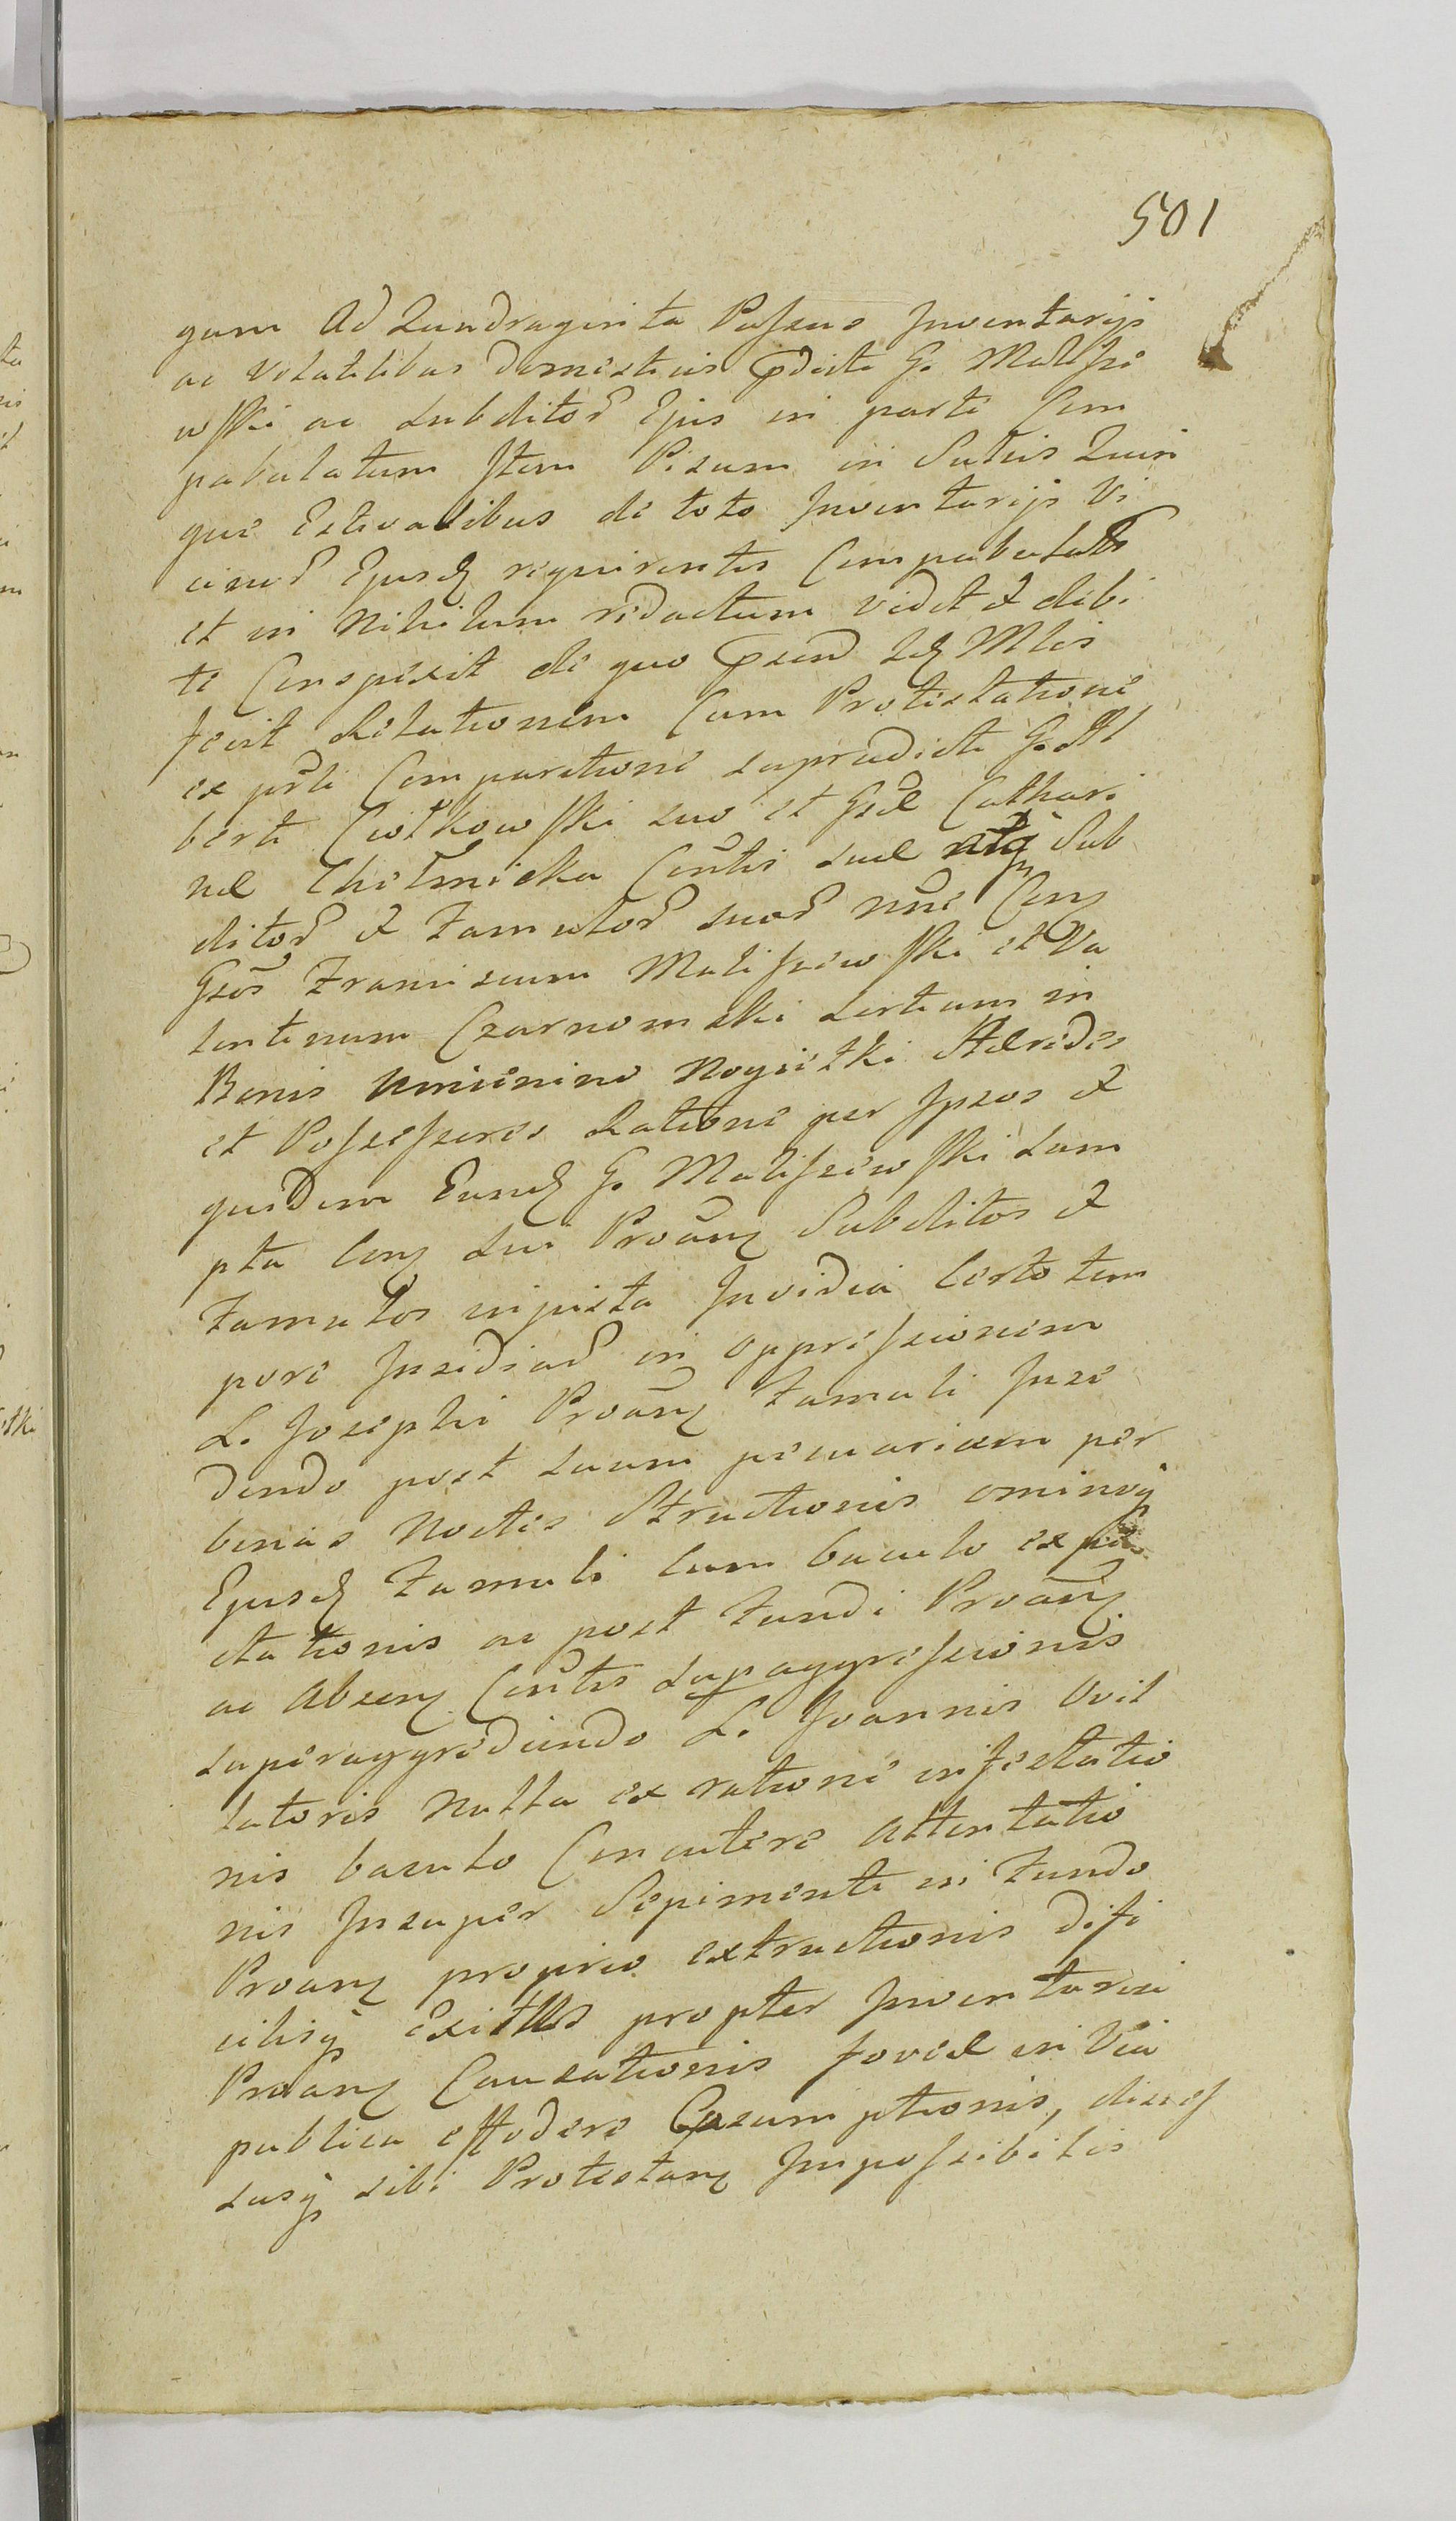 501
gam Ad Quadraginta Passus Inventarijs
ac volatilibus domesticis pdicti G. Malisze
wski ac subditor Ejus in parte Com
pabulatum Item Pisum in Satis Quin
que Estivalibus de toto Inventarijs Vi
cinor Ejusd reperientes Compabulatū
et in Nihilum redactum vidit & debi
te Conspexit de quo
fecit Relationem Cum Protestatione
ex psti Comparitione supradicti G. Al
berti Ciotkowski suo et Gsae Cathari
nae Chełmicka Conlis suae Sub
ditor & Famulor suor nne Con
Gsos Franciscum Maliszewski et Va
lentinum Czarnomski sortium in
Bonis Umienino Nogietki Haeredes
et Possessores Ratione per Ipsos &
quidem Eund G. Maliszewski sum
pta Con sui Proan Subditos &
Famulos injusta Invidia Certo tem
pore Insidiar in oppressionem
L. Josephi Proan Famuli Inse
dendo post suam pecuariam per
binas Noctes Structionis ominosq
Ejusd Famuli cum baculo expe
ctationis ac post Fundi Proan
ac Absen Conlis supaggressionis
superaggrediendo L. Joannis Opil
latoris Nulla ex ratione infestatio
nis baculo Concutere Attentatio
nis Insuper Sepimenti in Fundo
Proan proprio extructionis difi
cilisq Exitus propter Inventarii
Proan Causationis foveae in Via
publica effodere Consumptionis,
susq sibi Protestan Impossibilis